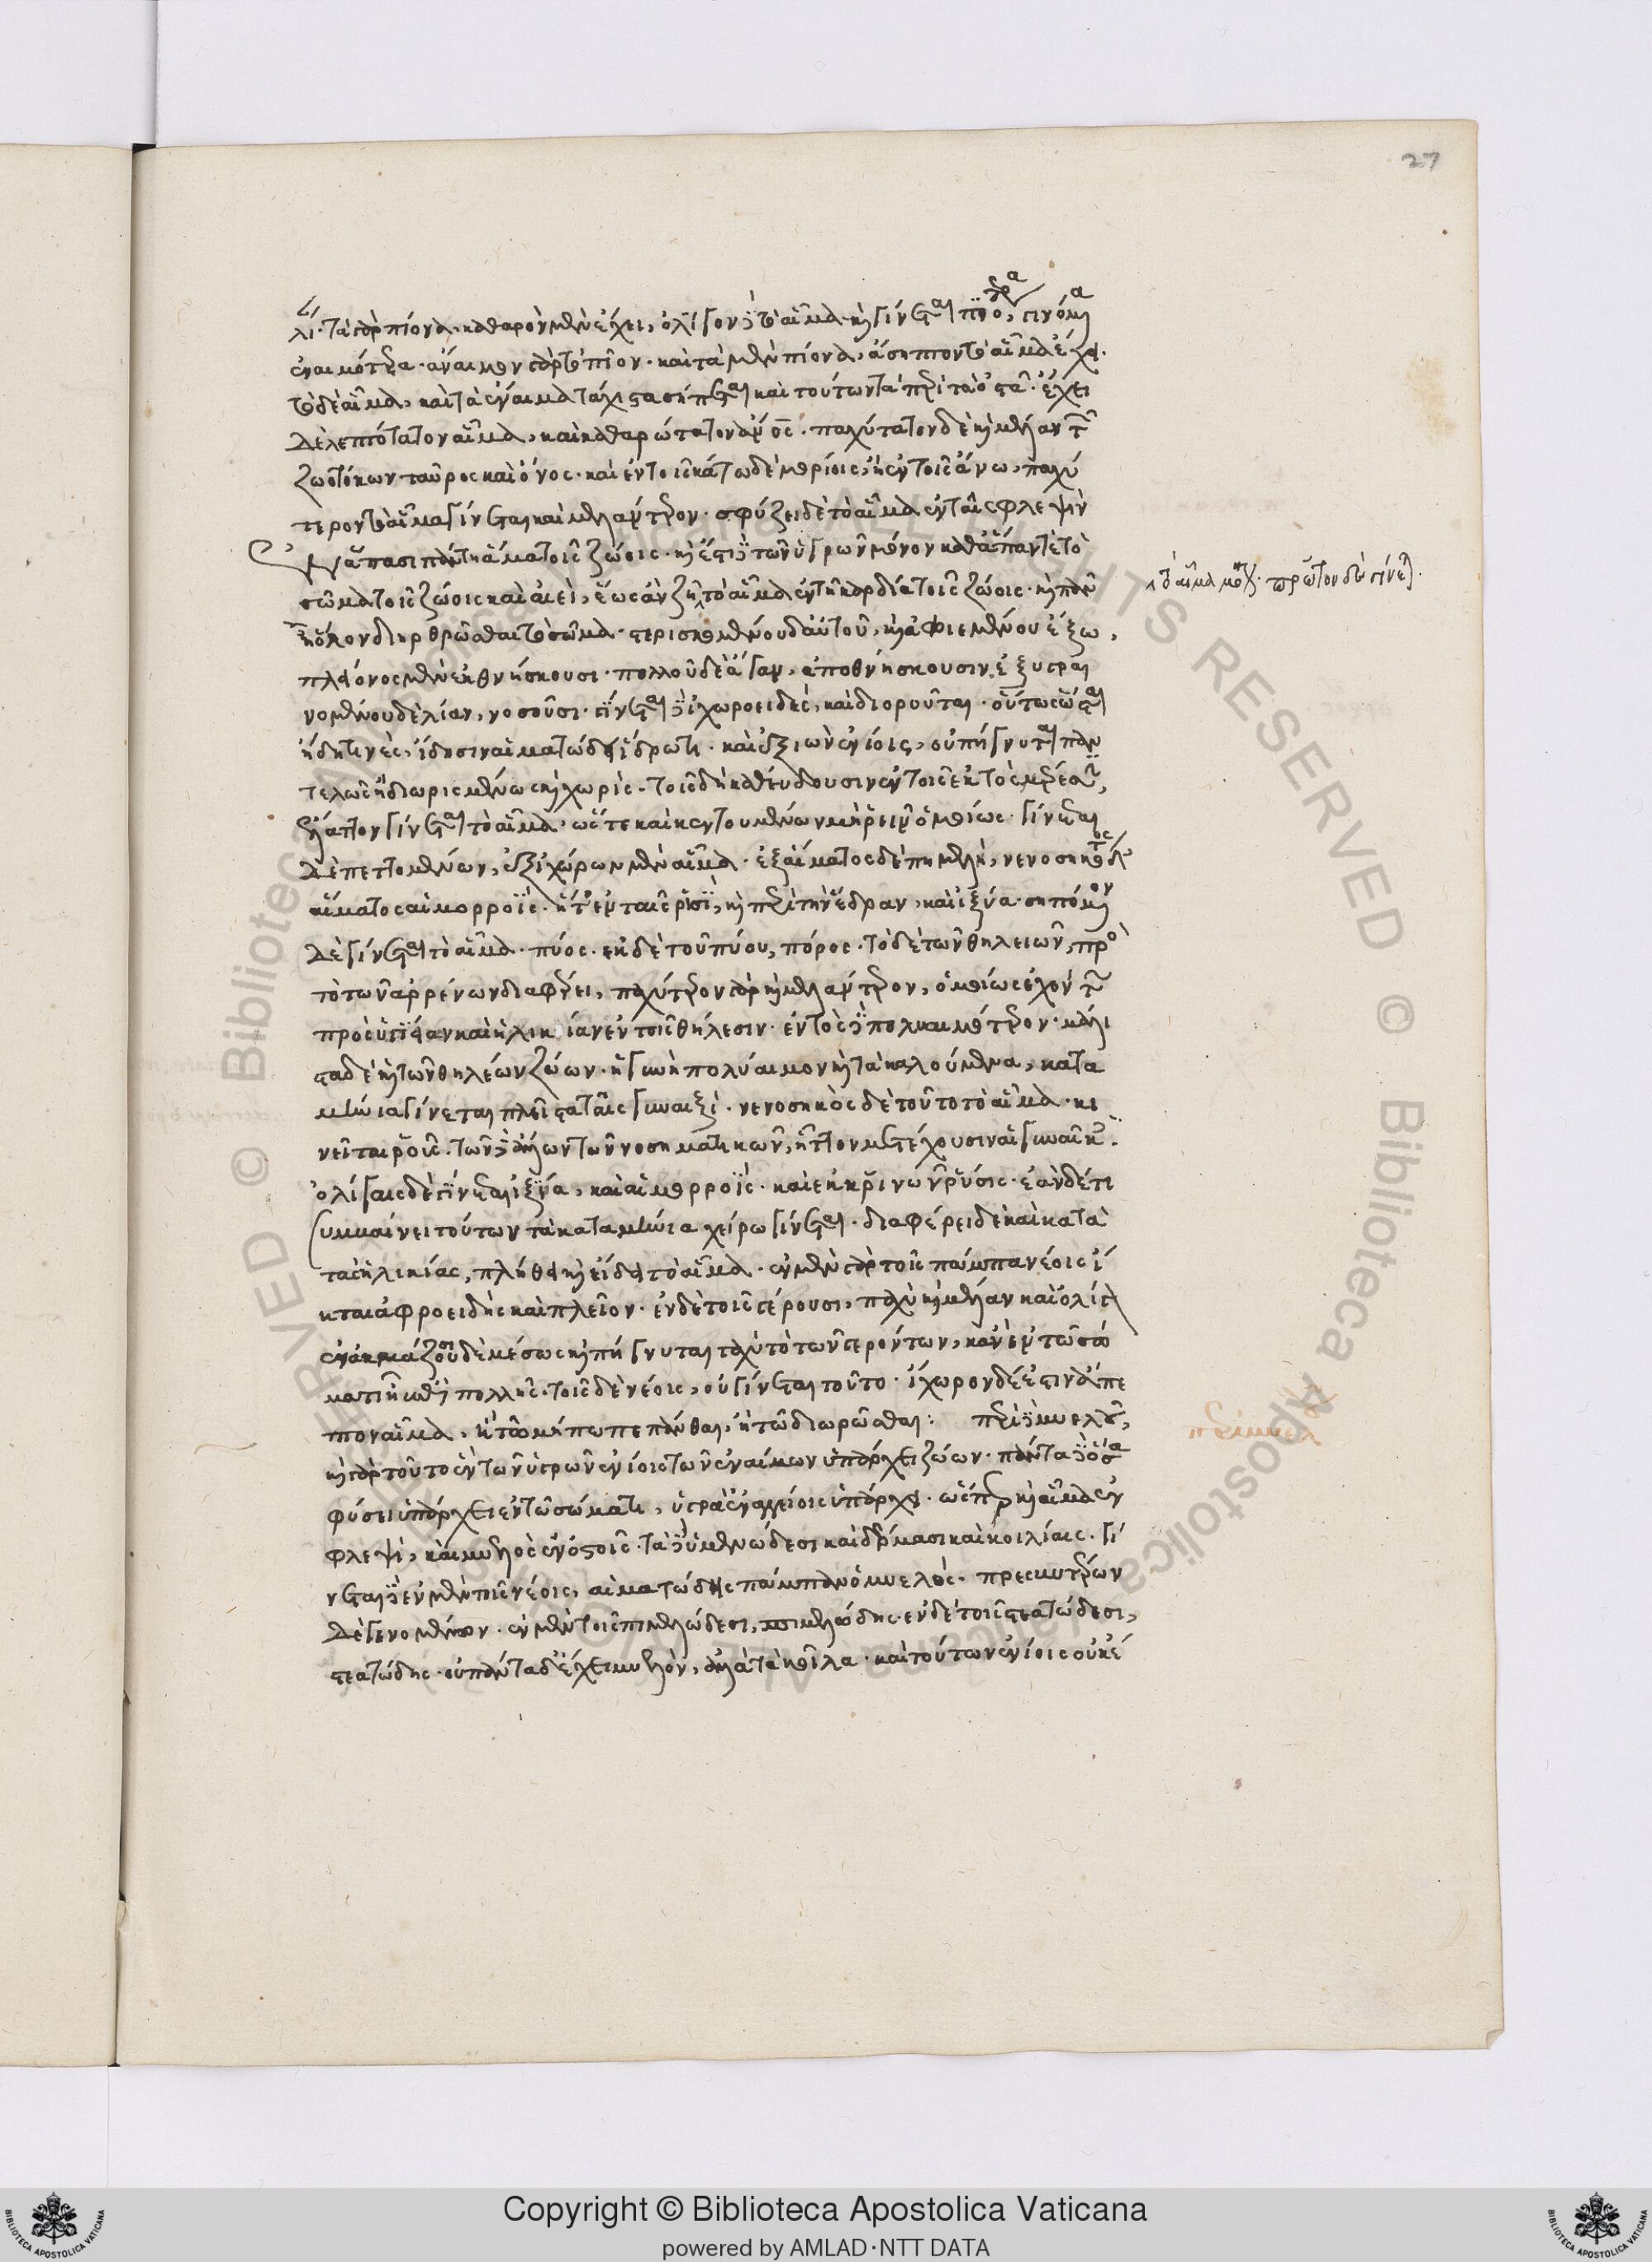 27
λι· τὰ γὰρ πίονα, καθαρὸν μὲν ἔχει, ὀλίγον δὲ τὸ αἷμα καὶ γίνεται πιότερα, γινόμενα
ἀναιμότερα· ἄναιμον γὰρ τὸ πῖον· καὶ τὰ μὲν πίονα, ἄσηπτον τὸ αἷμα ἔχει·
τὸ δὲ αἷμα, καὶ τὰ ἔναιμα τάχιστα σήπεται καὶ τούτων τὰ περὶ τὰ ὀστᾶ· ἔχει
δὲ λεπτότατον αἷμα, καὶ καθαρώτατον ἄνος· παχύτατον δὲ καὶ μέλαν τῶν
ζωοτόκων ταῦρος καὶ ὄνος· καὶ ἐν τοῖς κάτω δὲ μορίοις, ἢ ἐν τοῖς ἄνω, παχύ
τερον τὸ αἷμα γίνεται καὶ μελάντερον· σφύζει δὲ τὸ αἷμα ἐν ταῖς φλεψὶν
ἐν ἅπασι πάντη ἅμα τοῖς ζώοις· καὶ ἔστι δὲ τῶν ὑγρῶν μόνον καθ' ἅπαν τε τὸ
σῶμα τοῖς ζώοις καὶ ἀεὶ, ἕως ἂν ζῆ, τὸ αἷμα ἐν τῆ καρδία τοῖς ζώοις· καὶ πρὶν
ἢ ὅλον διηρθρῶσθαι τὸ σῶμα· στερισκομένου δ' αὐτοῦ, καὶ ἀφιεμένου ἔξω,
πλείονος μὲν ἐκθνήσκουσι· πολλοῦ δὲ ἄγαν, ἀποθνήσκουσιν· ἐξυγραι
νομένου δὲ λίαν, νοσοῦσι· γίνεται δὲ ἰχωροειδὲς, καὶ διοροῦται· οὕτως ὥστε
ἤδη τινὲς, ἴδησιν αἱματώδει ἱδρῶτι· καὶ ἐξιὸν ἐνίοις, οὐ πήγνυται παν
τελῶς ἢ διωρισμένως καὶ χωρίς· τοῖς δὴ καθεύδουσιν ἐν τοῖς ἐκτὸς μέρεσιν,
ἔλαττον γίνεται τὸ αἷμα· ὥστε καὶ κεντουμένων μὴ ῥεῖν ὁμοίως· γίνεται
δὲ πεττομένων, ἐξ ἰχώρων μὲν αἷμα· ἐξ αἵματος δὲ πιμελή, νενοσηκότος δ'
αἵματος αἱμορροῒς· ἥτ' ἐν ταῖς ῥισὶ, καὶ περὶ τὴν ἕδραν, καὶ ἰξία· σηπόμενον
δὲ γίνεται τὸ αἷμα· πύος· ἐκ δὲ τοῦ πύου, πόρος· τὸ δὲ τῶν θηλειῶν, πρὸς
τὸ τῶν ἀρρένων διαφέρει, παχύτερον γὰρ καὶ μελάντερον, ὁμοίως ἐχόντων
πρὸς ὑγίειαν καὶ ἡλικίαν ἐν τοῖς θήλεσιν· ἐντὸς δὲ πολυαιμότερον· μάλι
στα δὲ καὶ τῶν θηλέων ζώων· ἡ γυνὴ πολύαιμον καὶ τὰ καλούμενα, κατα
μήνια γίνεται πλεῖστα ταῖς γυναιξὶ· νενοσηκὸς δὲ τοῦτο τὸ αἷμα· κα
λεῖται ῥοῦς· τῶν δὲ ἄλλων τῶν νοσηματικῶν, ἧττον μετέχουσιν αἱ γυναῖκες·
ὀλίγαις δὲ γίνεται ἰξία, καὶ αἱμορροῒς· καὶ ἐκ ῥινῶν ῥύσις· ἐὰν δέ τι
συμβαίνει τούτων τὰ καταμήνια χείρω γίνεται· διαφέρει δὲ καὶ κατὰ
τὰς ἡλικίας, πλήθει καὶ εἴδει τὸ αἷμα· ἐν μὲν γὰρ τοῖς πάμπαν νέοις ἰ
κται ἀφροειδὴς καὶ πλεῖον· ἐν δὲ τοῖς γέρουσι, παχὺ καὶ μέλαν καὶ ὀλίγον
ἐν ἀκμάζουσι δὲ μέσως καὶ πήγνυται ταχὺ τὸ τῶν γερόντων, κἂν ἐν τῶ σώ
ματι ἦ ἐπιπολῆς· τοῖς δὲ νέοις, οὐ γίνεται τοῦτο· ἰχὼρ δέ ἐστιν ἄπε
πτον αἷμα, ἢ τῶ μήπω πεπέφθαι, ἢ τῶ διωρῶσθαι: περὶ δὲ μυελοῦ,
καὶ γὰρ τοῦτο ἓν τῶν ὑγρῶν ἐνίοις τῶν ἐναίμων ὑπάρχει ζώων· πάντα δὲ ὅσα
φύσει ὑπάρχει ἐν τῶ σώματι, ὑγρὰ ἐν ἀγγείοις ὑπάρχει· ὥσπερ καὶ αἷμα ἐν
φλεψὶ, καὶ μυελὸς ἐν ὀστοῖς· τὰ δὲ ὑμενώδεσι καὶ δέρμασι καὶ κοιλίαις· γί
νεται δὲ ἐν μὲν τοῖς νέοις, αἱματώδης πάμπαν ὁ μυελὸς· πρεσβυτέρων
δὲ γενομένων· ἐν μὲν τοῖς πιμελώδεσι, πιμελώδης· ἐν δὲ τοῖς στεατώδεσι,
στεατώδης· οὐ πάντα δ' ἔχει μυελὸν, ἀλλὰ τὰ κοῖλα· καὶ τούτων ἐνίοις οὐκ ἔ
τὸ αἷμα μόνον· πρῶτον δὲ γίνεται·
περὶ μυελοῦ
Copyright © Biblioteca Apostolica Vaticana
powered by AMLAD·NTT DATA